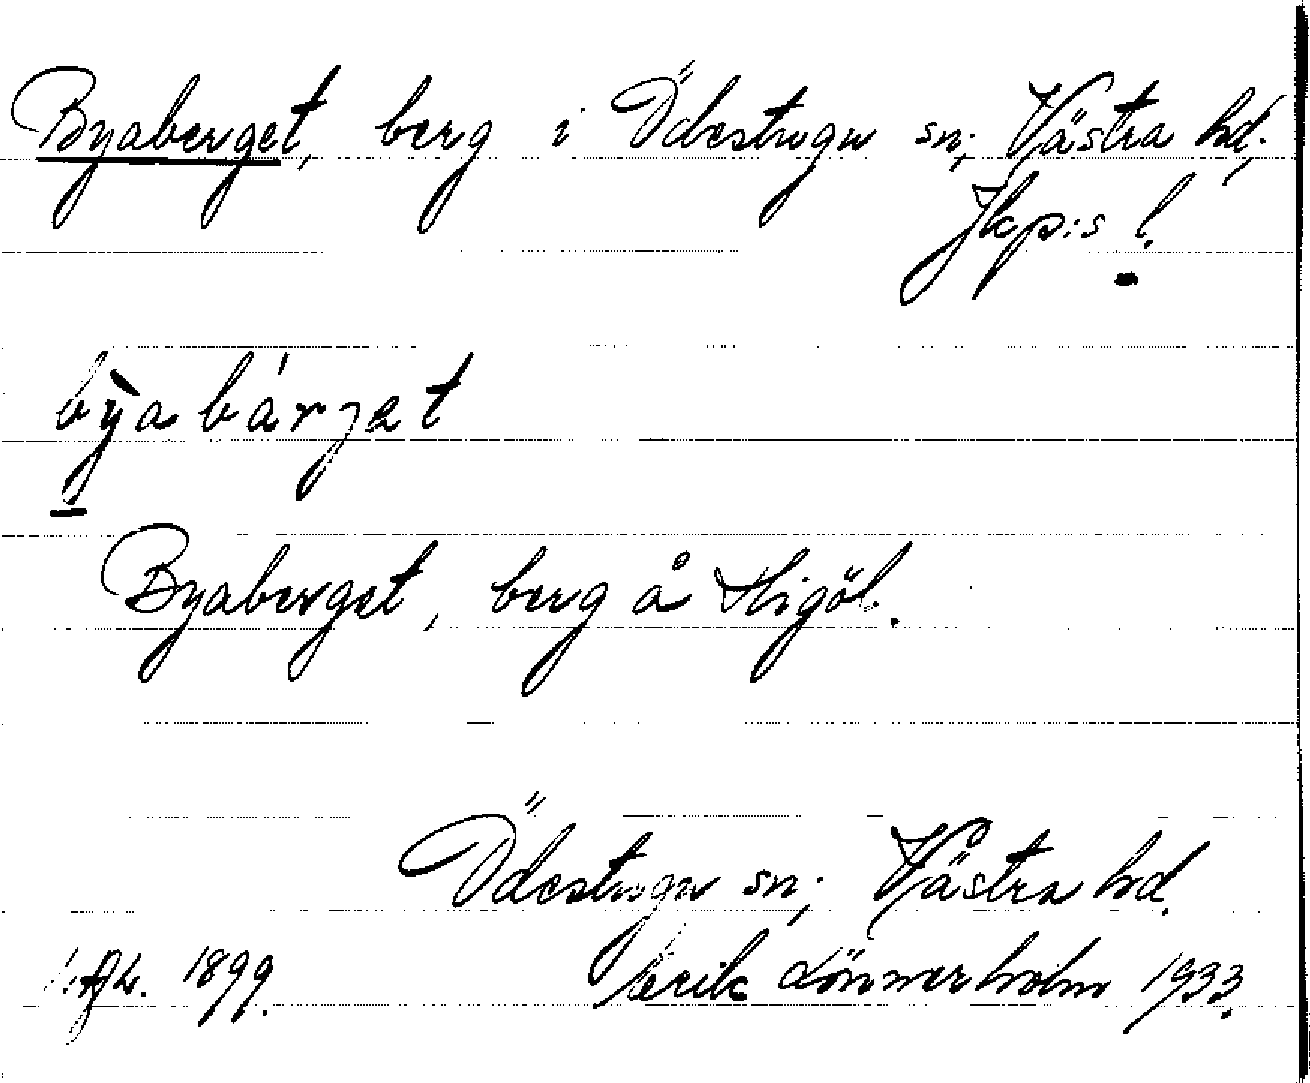 Byaberget, berg i Ödestugu sn; Västra hd;
Jkp:s l.
bỳa bárjet
Byaberget, berg å Stigöl.
Ödestugu sn; Västra hd.
1899.
Erik Lönnerholm 1933.